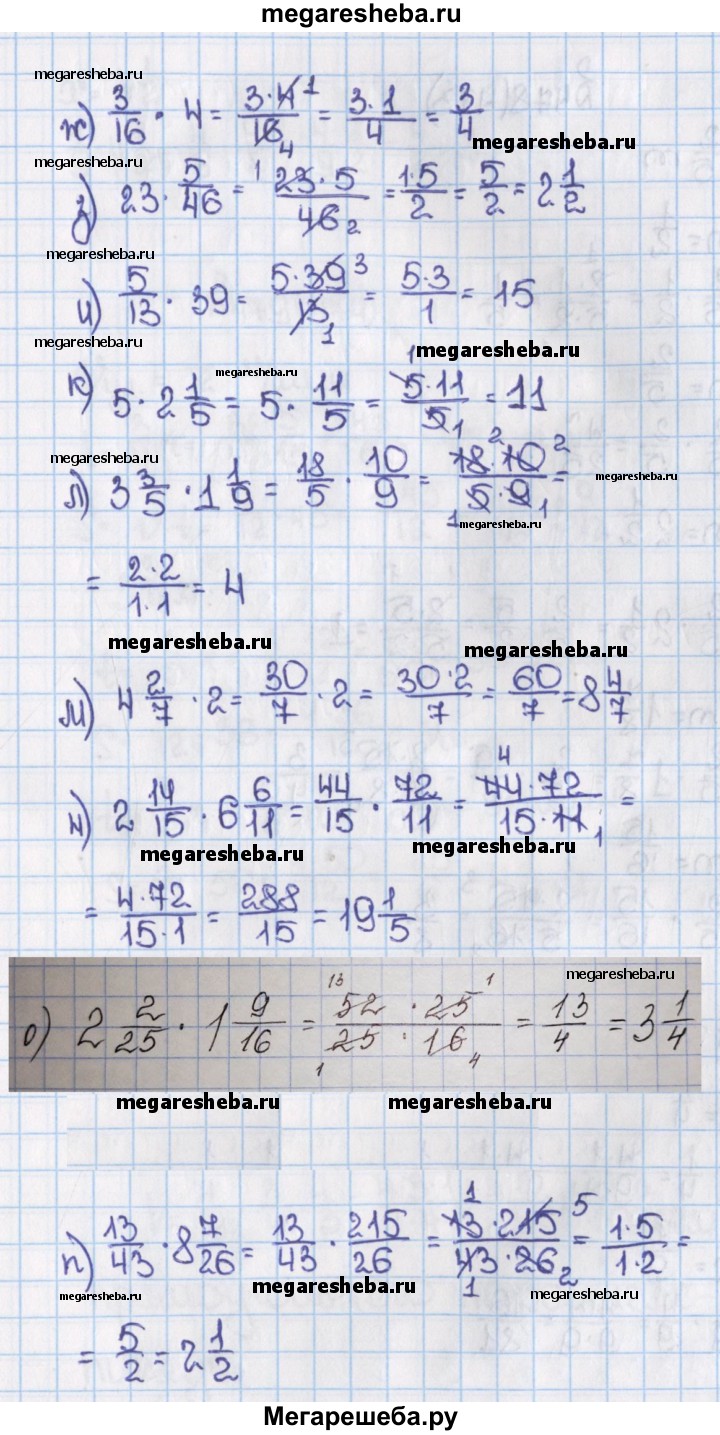 megaresheba.ru
megaresheba.ru
ж) 3/16 · 4 = 3·4/16 = 3·1/4 = 3/4
1
4
megaresheba.ru
megaresheba.ru
з) 23 · 5/46 = 23·5/46 = 1·5/2 = 5/2 = 2 1/2
1
2
megaresheba.ru
и) 5/13 · 39 = 5·39/13 = 5·3/1 = 15
3
1
megaresheba.ru
megaresheba.ru
megaresheba.ru
к) 5 · 2 1/5 = 5 · 11/5 = 5·11/5 = 11
1
1
megaresheba.ru
л) 3 3/5 · 1 1/9 = 18/5 · 10/9 = 18·10/5·9 =
2 2
1 1
megaresheba.ru
megaresheba.ru
= 2·2/1·1 = 4
megaresheba.ru
megaresheba.ru
м) 4 2/7 · 2 = 30/7 · 2 = 30·2/7 = 60/7 = 8 4/7
н) 2 14/15 · 6 6/11 = 44/15 · 72/11 = 44·72/15·11 =
4
1
megaresheba.ru
megaresheba.ru
= 4·72/15·1 = 288/15 = 19 1/5
megaresheba.ru
о) 2 2/25 · 1 9/16 = 52·25/25·16 = 13/4 = 3 1/4
13 1
1 4
megaresheba.ru
megaresheba.ru
п) 13/43 · 8 7/26 = 13/43 · 215/26 = 13·215/43·26 = 1·5/1·2 =
1 5
1 2
megaresheba.ru
megaresheba.ru
megaresheba.ru
megaresheba.ru
= 5/2 = 2 1/2
Мегарешеба.ру